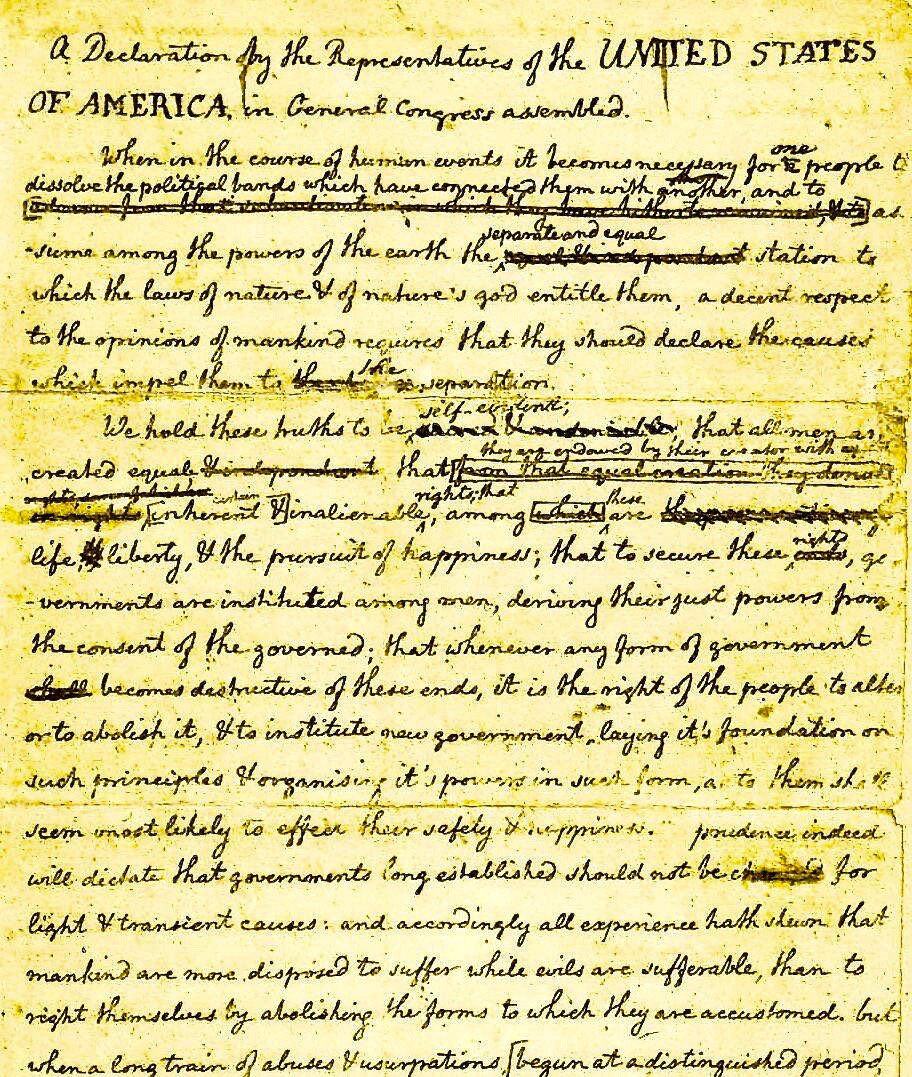 A Declaration by the Representatives of the UNITED STATES
OF AMERICA, in General Congress assembled.
When in the course of human events it becomes necessary for one people to
dissolve the political bands which have connected them with another, and to
as
-sume among the powers of the earth the separate and equal station to
which the laws of nature & of nature's god entitle them, a decent respect
to the opinions of mankind requires that they should declare the causes
which impel them to the separation.
self-evident;
We hold these truths to be that all men are
they are endowed by their creator with
created equal & independent that [from that equal creation they derive
rights, some of which are certain rights; that these
in rights [inherent &] inalienable, among [which] are
life, liberty, & the pursuit of happiness; that to secure these rights, go
-vernments are instituted among men, deriving their just powers from
the consent of the governed; that whenever any form of government
shall becomes destructive of these ends, it is the right of the people to alter
or to abolish it, & to institute new government, laying it's foundation on
such principles & organising it's powers in such form, as to them shall
seem most likely to effect their safety & happiness. prudence indeed
will dictate that governments long established should not be for
light & transient causes: and accordingly all experience hath shewn that
mankind are more disposed to suffer while evils are sufferable, than to
right themselves by abolishing the forms to which they are accustomed. but
when a long train of abuses & usurpations, [begun at a distinguished period,